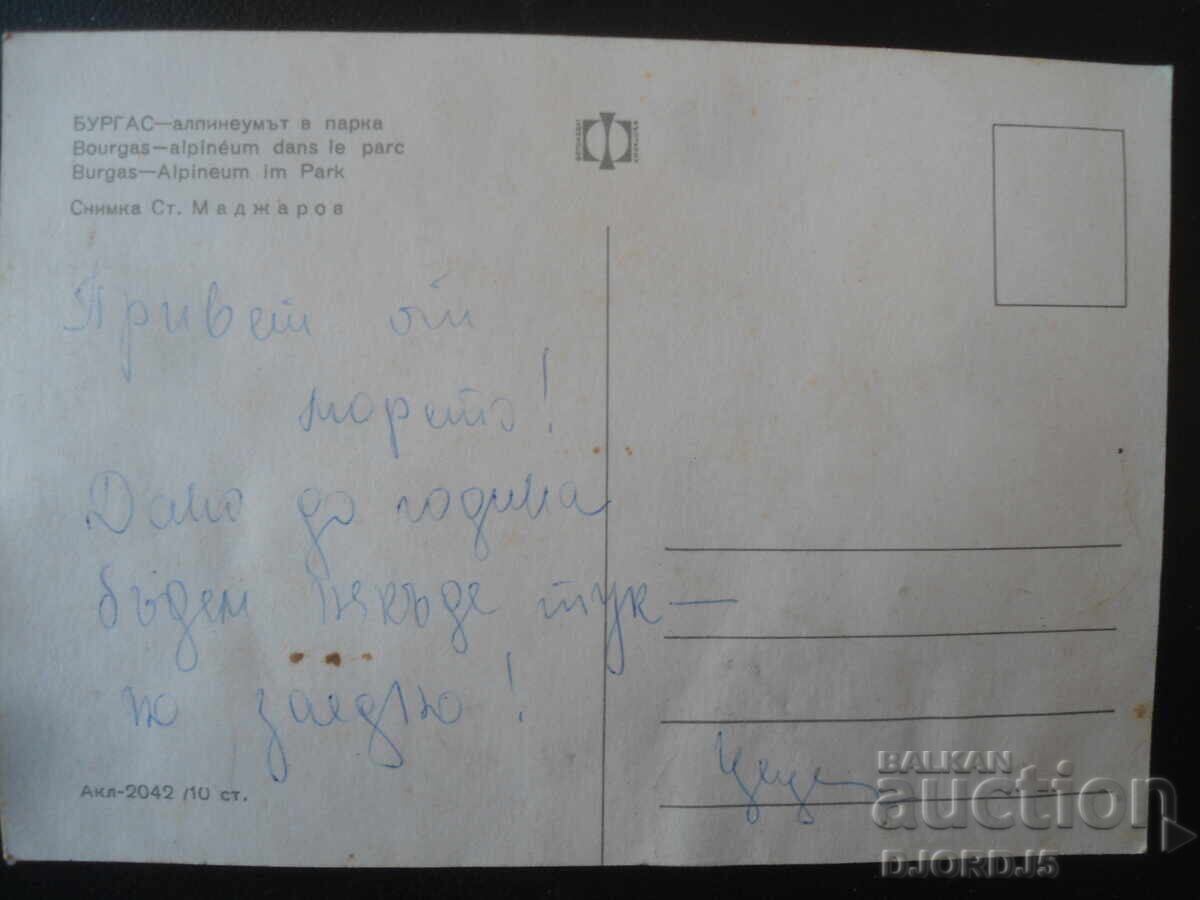 БУРГАС—алпинеумът в парка
Bourgas—alpinéum dans le parc
Burgas—Alpineum im Park
Снимка Ст. Маджаров
Привет от
морето!
Дано до година
бъдем някъде тук —
но заедно!
Акл-2042 /10 ст.
BALKAN
auction
DJORDJ5